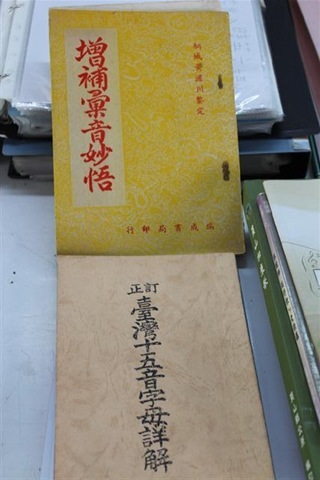 桐城黃澹川鑒定
增補彙音妙悟
瑞成書局印行
訂正
臺灣十五音字母詳解